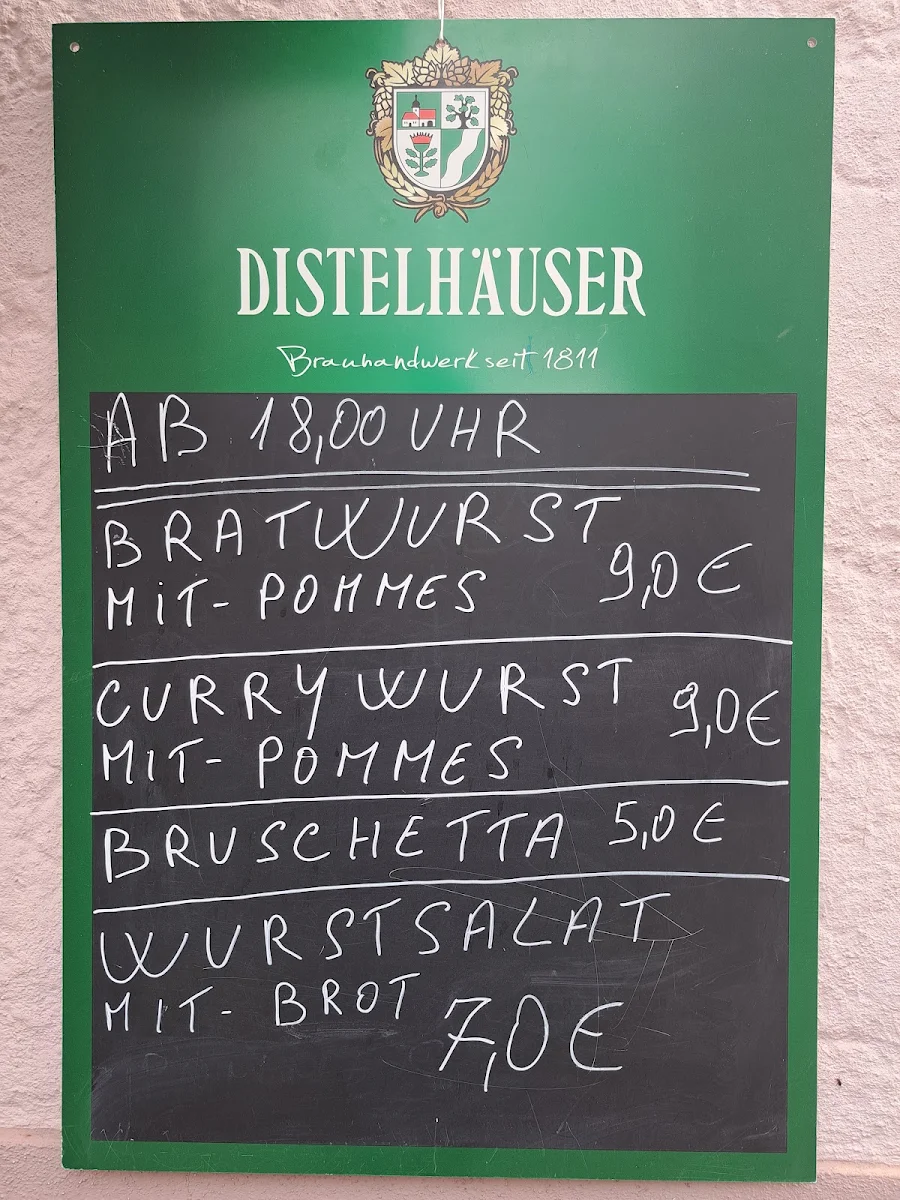 DISTELHÄUSER
Brauhandwerk seit 1811
AB 18,00 UHR
BRATWURST
MIT- POMMES 9,0 €
CURRYWURST
MIT- POMMES 9,0 €
BRUSCHETTA 5,0 €
WURSTSALAT
MIT- BROT 7,0 €